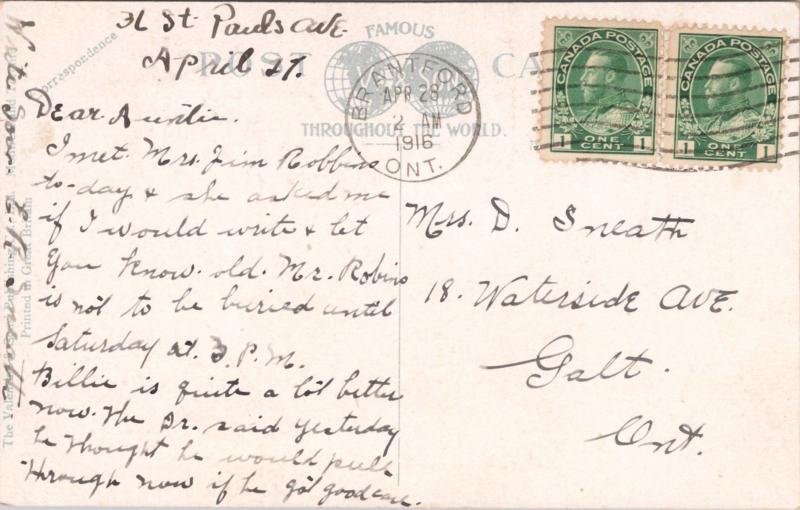 31 St Pauls Ave.
April 27.
Dear Auntie.
I met. Mrs. Jim Robbins
to-day & she asked me
if I would write & let
you know. old. Mr. Robins
is not to be buried until
Saturday at. 3. P.M.
Billie is quite a lot better
now. The Dr. said yesterday
he thought he would pull
through now if he got good care.
Write Soon
Correspondence
Printed in Great Britain
POST CA
FAMOUS
THROUGHOUT THE WORLD.
BRANTFORD
APR 28
2 AM
1916
ONT.
CANADA POSTAGE
1 ONE CENT 1
CANADA POSTAGE
1 ONE CENT 1
Mrs. D. Sneath
18. Waterside Ave.
Galt.
Ont.